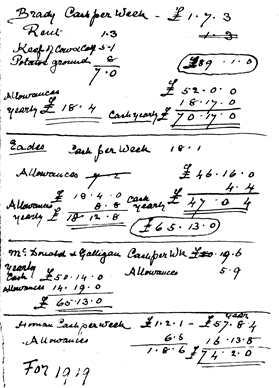 Brady Cash per Week - £1.7.3
Rent 1.3 1.3
Keep of Cow & Calf 5.1
Potatoe ground 8 £89.1.0
7.0
Allowances £52.0.0
yearly £18.4 18.17.0
Cash yearly £70.17.0
Eades Cash per Week 18.1
Allowances £46.16.0
£18.4.0 Cash 4.4
Allowances 8.8 yearly £47.0.4
yearly £18.12.8
£65.13.0
McDonald & Galligan Cash per Wk 19.6
yearly
Cash £50.14.0 Allowances 5.9
Allowances 14.19.0
£65.13.0
year
Homan Cash per week £1.2.1 - £57.8.4
Allowances 6.5 16.13.8
1.8.6 £74.2.0
For 1919